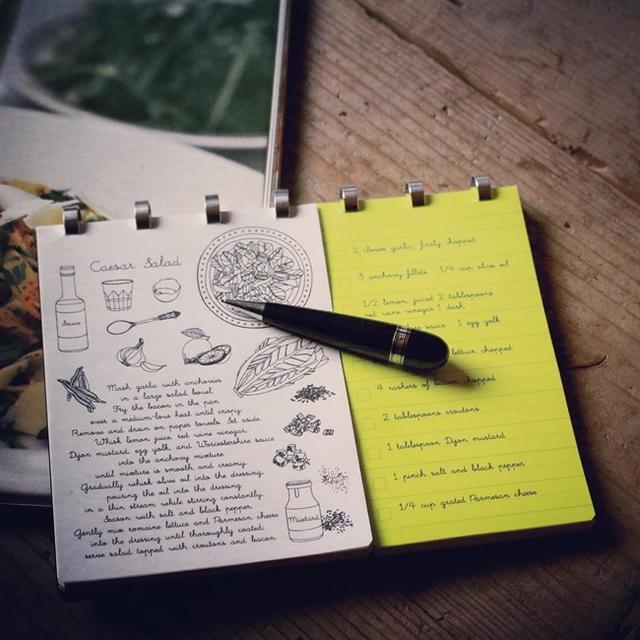 Caesar Salad
Sauce
Mash garlic with anchovies
in a large salad bowl.
Fry the bacon in the pan
over a medium-low heat until crispy.
Remove and drain on paper towels. Set aside
Whisk lemon juice red wine vinegar,
Dijon mustard, egg yolk, and Worcestershire sauce
into the anchovy mixture
until mixture is smooth and creamy.
Gradually whisk olive oil into the dressing,
pouring the oil into the dressing
in a thin stream while stirring constantly.
Season with salt and black pepper.
Gently mix romaine lettuce and Parmesan cheese
into the dressing until thoroughly coated;
serve salad topped with croutons and bacon.
Mustard
2 cloves garlic, finely chopped
3 anchovy fillets 1/4 cup olive oil
1/2 lemon, juiced 2 tablespoons
red wine vinegar 1 dash
sauce 1 egg yolk
lettuce chopped
4 rashers of bacon chopped
2 tablespoons croutons
1 tablespoon Dijon mustard
1 pinch salt and black pepper
1/4 cup grated Parmesan cheese